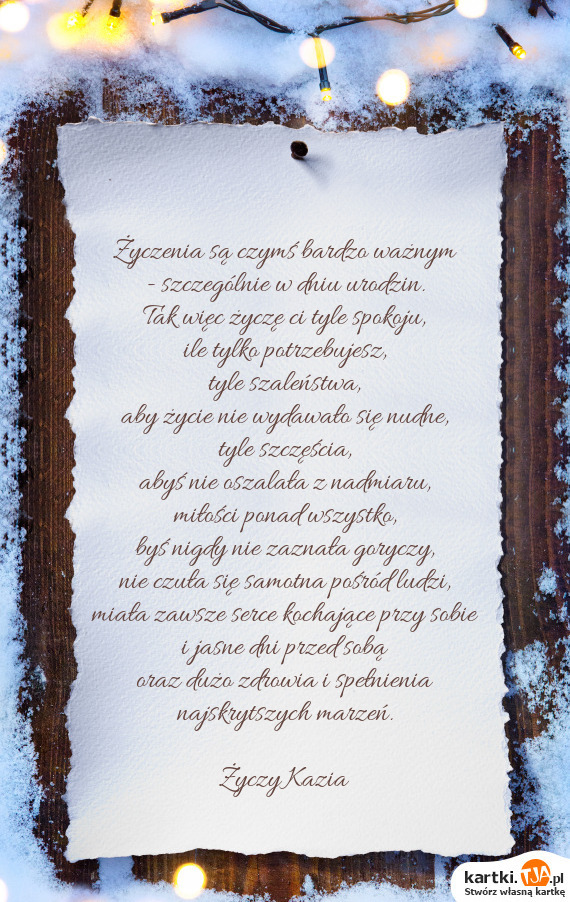 Życzenia są czymś bardzo ważnym
- szczególnie w dniu urodzin.
Tak więc życzę ci tyle spokoju,
ile tylko potrzebujesz,
tyle szaleństwa,
aby życie nie wydawało się nudne,
tyle szczęścia,
abyś nie oszalała z nadmiaru,
miłości ponad wszystko,
byś nigdy nie zaznała goryczy,
nie czuła się samotna pośród ludzi,
miała zawsze serce kochające przy sobie
i jasne dni przed sobą
oraz dużo zdrowia i spełnienia
najskrytszych marzeń.
Życzy Kazia
kartki.TJA.pl
Stwórz własną kartkę